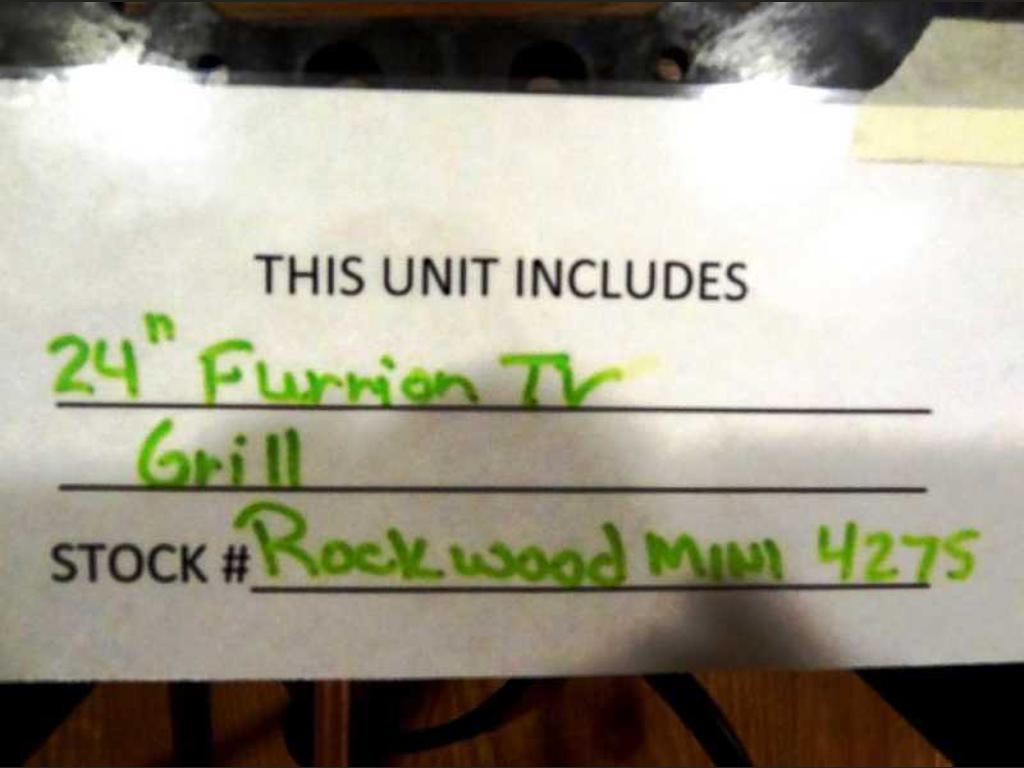 THIS UNIT INCLUDES
24" Furrion TV
Grill
STOCK # Rockwood MINI 4275